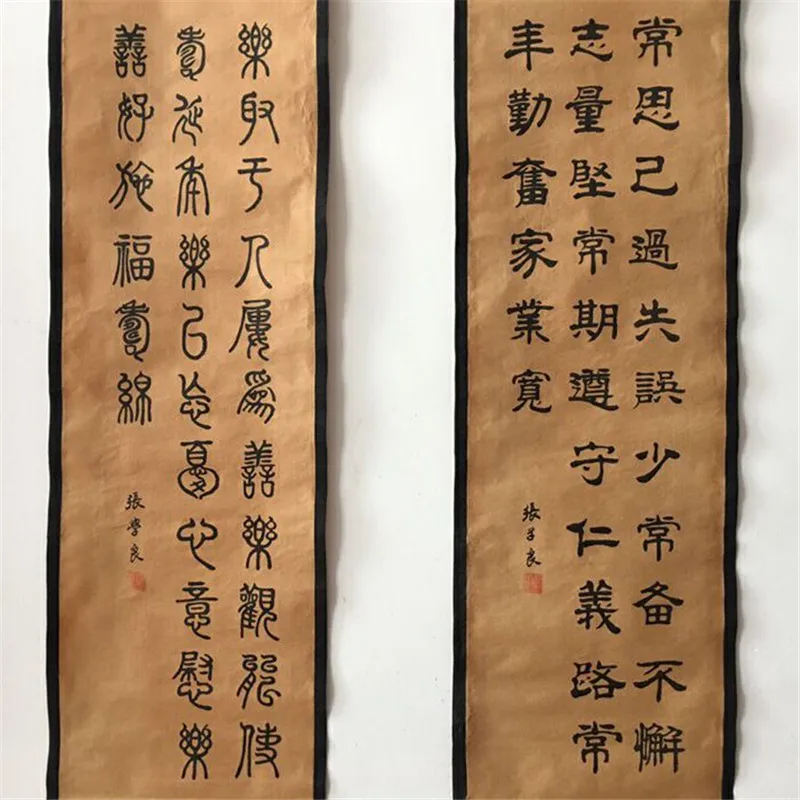 常思己過失誤少常备不懈
志量堅常期遵守仁義路常
丰勤奮家業寬
張学良
樂取于人屢為善樂觀能使
壽延年樂以忘憂心意慰樂
善好施福壽綿
張學良